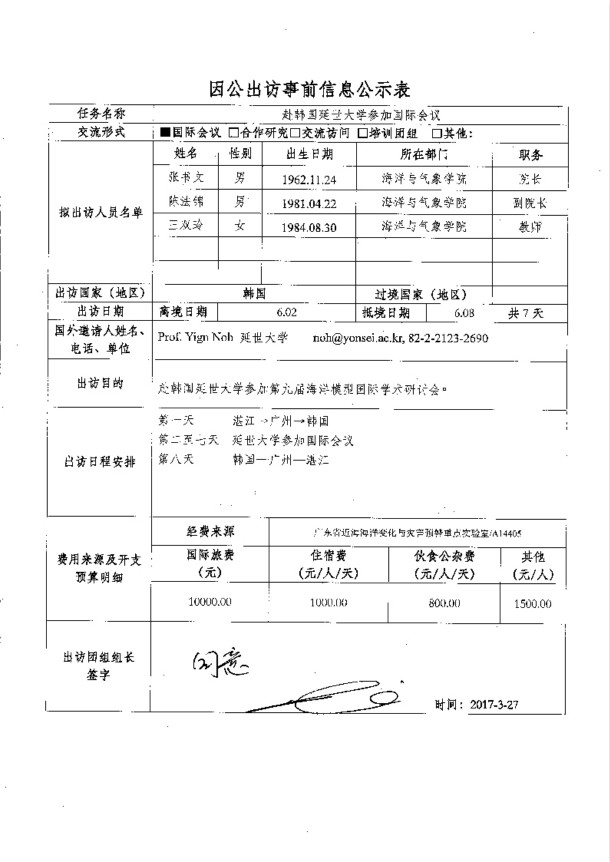 因公出访事前信息公示表
任务名称 赴韩国延世大学参加国际会议
交流形式 ■国际会议 □合作研究□交流访问 □培训团组 □其他:
拟出访人员名单 姓名 性别 出生日期 所在部门 职务
张书文 男 1962.11.24 海洋与气象学院 院长
陈法锦 男 1981.04.22 海洋与气象学院 副院长
王双玲 女 1984.08.30 海洋与气象学院 教师
出访国家(地区) 韩国 过境国家(地区)
出访日期 离境日期 6.02 抵境日期 6.08 共 7 天
国外邀请人姓名、电话、单位 Prof. Yign Noh 延世大学 noh@yonsei.ac.kr, 82-2-2123-2690
出访目的 赴韩国延世大学参加第九届海洋模型国际学术研讨会。
出访日程安排
第一天 湛江→广州→韩国
第二至七天 延世大学参加国际会议
第八天 韩国—广州—湛江
费用来源及开支预算明细
经费来源 广东省近海海洋变化与灾害预警重点实验室/A14405
国际旅费(元) 住宿费(元/人/天) 伙食公杂费(元/人/天) 其他(元/人)
10000.00 1000.00 800.00 1500.00
出访团组组长签字 同意
时间: 2017-3-27